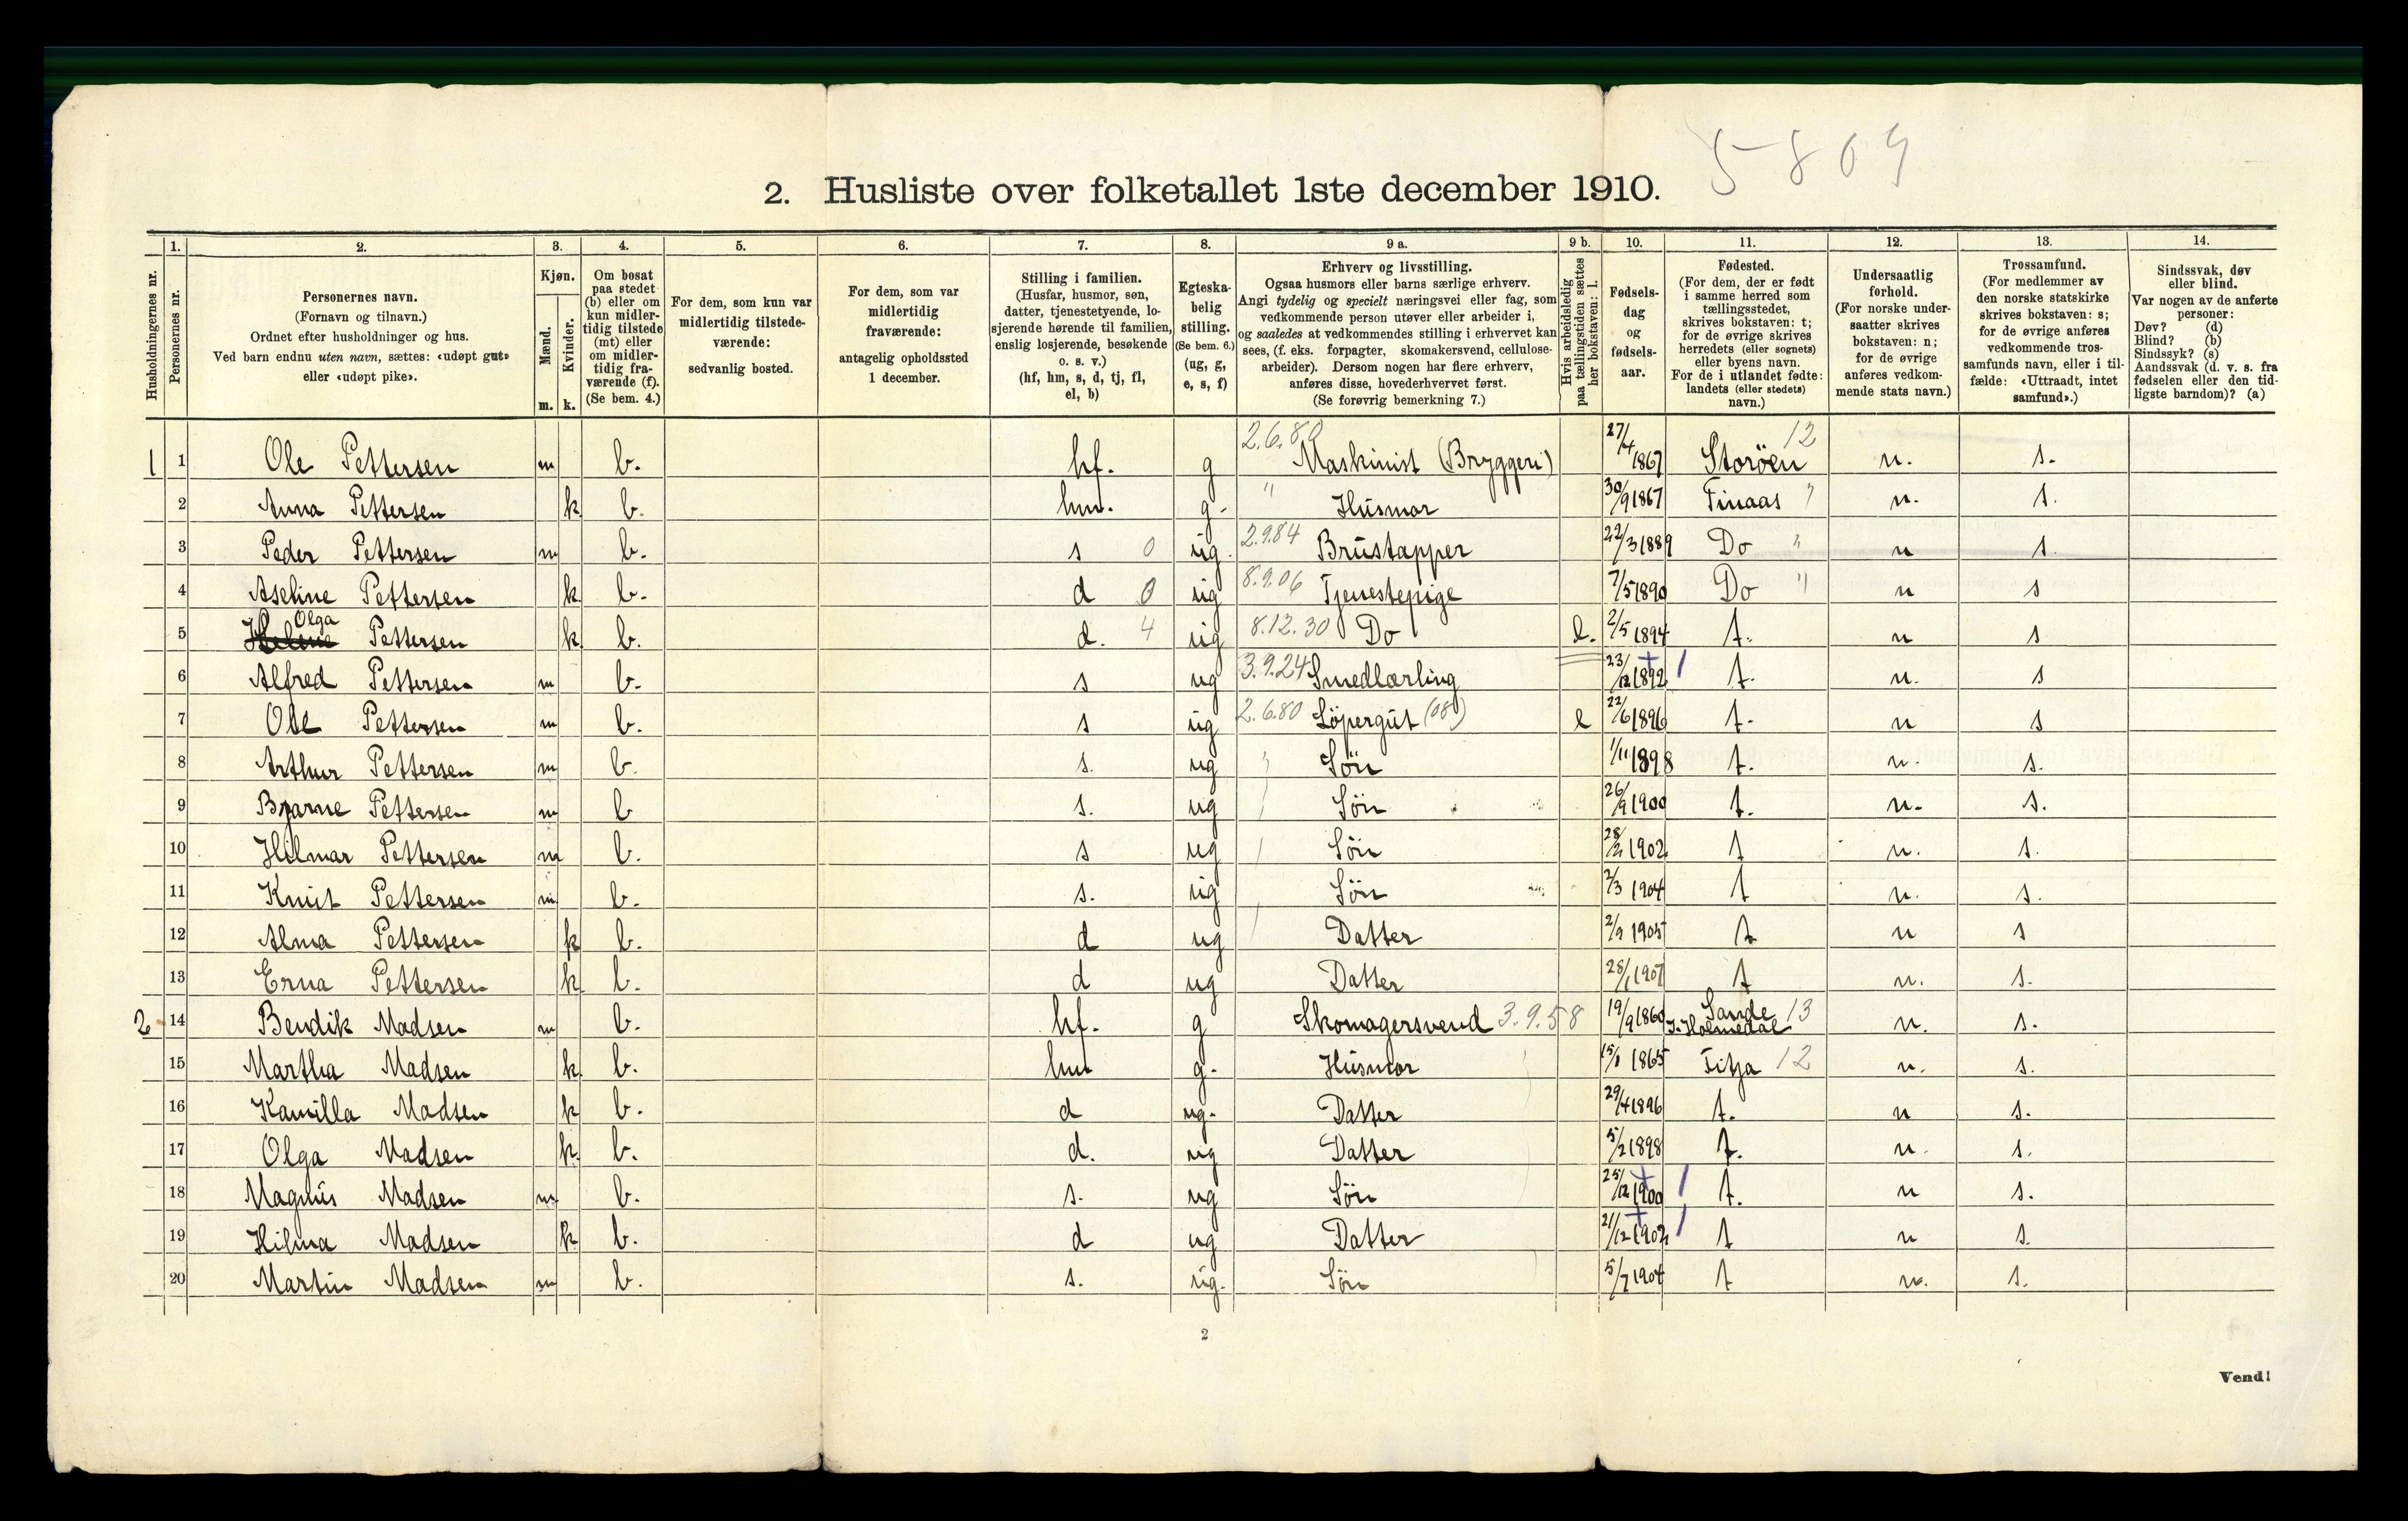 5809
2. Husliste over folketallet 1ste december 1910.
Husholdningernes nr.
1. Personernes nr.
2. Personernes navn. (Fornavn og tilnavn.) Ordnet efter husholdninger og hus. Ved barn endnu uten navn, sættes: «udøpt gut» eller «udøpt pike».
3. Kjøn. Mænd. m. Kvinder. k.
4. Om bosat paa stedet (b) eller om kun midlertidig tilstede (mt) eller om midlertidig fraværende (f). (Se bem. 4.)
5. For dem, som kun var midlertidig tilstedeværende: sedvanlig bosted.
6. For dem, som var midlertidig fraværende: antagelig opholdssted 1 december.
7. Stilling i familien. (Husfar, husmor, søn, datter, tjenestetyende, losjerende hørende til familien, enslig losjerende, besøkende o. s. v.) (hf, hm, s, d, tj, fl, el, b)
8. Egteskabelig stilling. (Se bem. 6.) (ug, g, e, s, f)
9 a. Erhverv og livsstilling. Ogsaa husmors eller barns særlige erhverv. Angi tydelig og specielt næringsvei eller fag, som vedkommende person utøver eller arbeider i, og saaledes at vedkommendes stilling i erhvervet kan sees, (f. eks. forpagter, skomakersvend, cellulosearbeider). Dersom nogen har flere erhverv, anføres disse, hovederhvervet først. (Se forøvrig bemerkning 7.)
9 b. Hvis arbeidsledig paa tællingstiden sættes her bokstaven: l.
10. Fødselsdag og fødselsaar.
11. Fødested. (For dem, der er født i samme herred som tællingsstedet, skrives bokstaven: t; for de øvrige skrives herredets (eller sognets) eller byens navn. For de i utlandet fødte: landets (eller stedets) navn.)
12. Undersaatlig forhold. (For norske undersaatter skrives bokstaven: n; for de øvrige anføres vedkommende stats navn.)
13. Trossamfund. (For medlemmer av den norske statskirke skrives bokstaven: s; for de øvrige anføres vedkommende trossamfunds navn, eller i tilfælde: «Uttraadt, intet samfund».)
14. Sindssvak, døv eller blind. Var nogen av de anførte personer: Døv? (d) Blind? (b) Sindssyk? (s) Aandssvak (d. v. s. fra fødselen eller den tidligste barndom)? (a)
1 1 Ole Pettersen m b. hf. g 2.6.80 Maskinist (Bryggeri) 27/4 1867 Storöen 12 n. s.
2 Anna Pettersen k b. hm. g. " Husmor 30/9 1867 Finaas " n. s.
3 Peder Pettersen m b. s 0 ug. 2.9.84 Brustapper 22/3 1889 Do " n s.
4 Aseline Pettersen k b. d 0 ug 8.9.06 Tjenestepige 7/5 1890 Do " n s
5 Helene Olga Pettersen k b. d. 4 ug 8.12.30 Do l. 2/5 1894 t. n s
6 Alfred Pettersen m b. s ug 3.9.24 Smedlærling 23/12 1892 t. n. s
7 Ole Pettersen m b. s ug 2.6.80 Löpergut (08) l 22/6 1896 t. n s
8 Arthur Pettersen m b. s. ug " Sön 1/11 1898 t. n. s.
9 Bjarne Pettersen m b s. ug Sön 26/9 1900 t. n. s.
10 Hilmar Pettersen m b. s ug Sön 28/2 1902 t n. s.
11 Knut Pettersen m b. s. ug Sön 2/3 1904 t n. s.
12 Alma Pettersen k b. d ug Datter 2/9 1905 t n s
13 Erna Pettersen k b. d ug Datter 28/1 1907 t n. s.
2 14 Bendik Madsen m b. hf. g Skomagersvend 3.9.58 19/9 1860 Sande I. Holmedal 13 n. s.
15 Martha Madsen k b. hm g. Husmor 15/1 1865 Fitja 12 n. s.
16 Kamilla Madsen k b. d ug. Datter 29/4 1896 t. n s.
17 Olga Madsen k b. d. ug Datter 5/2 1898 t. n. s.
18 Magnus Madsen m b. s. ug Sön 25/12 1900 t. n s.
19 Hilma Madsen k b. d ug Datter 21/12 1902 t n s.
20 Martin Madsen m b. s. ug. Sön 5/7 1904 t n. s.
2
Vend!